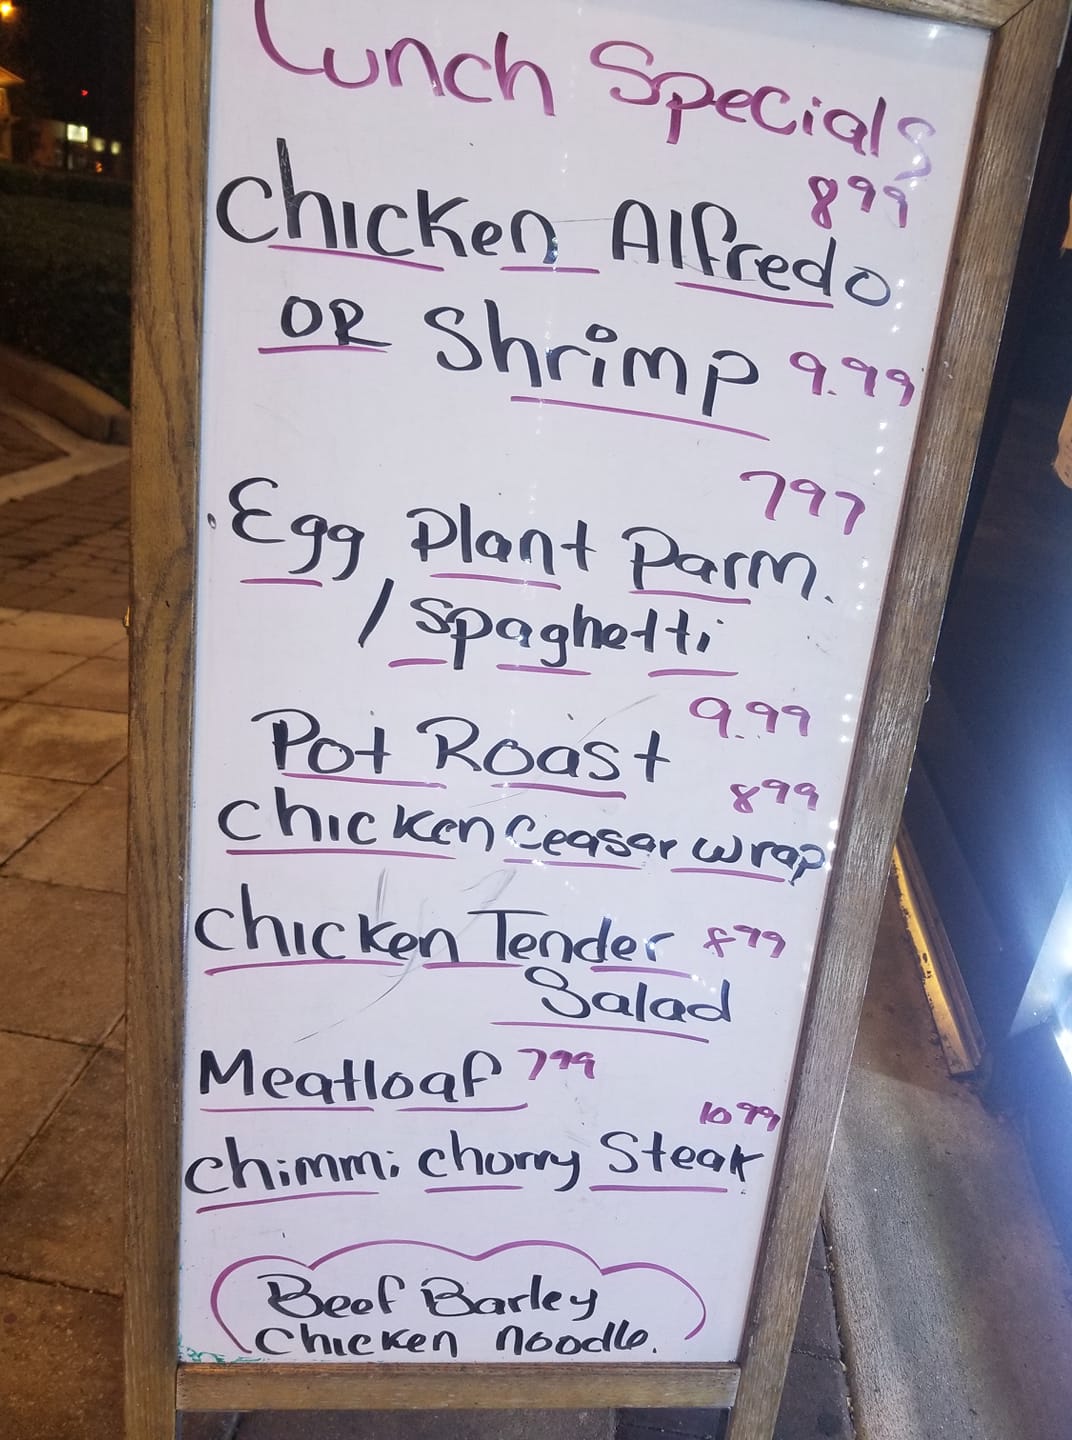 Lunch Specials
8 99
Chicken Alfredo
OR Shrimp 9.99
797
Egg Plant Parm.
/ Spaghetti
9.99
Pot Roast
8 99
Chicken Ceasar Wrap
Chicken Tender 8 99
Salad
Meatloaf 7 99
10 99
Chimmi Churry Steak
Beef Barley
Chicken noodle.